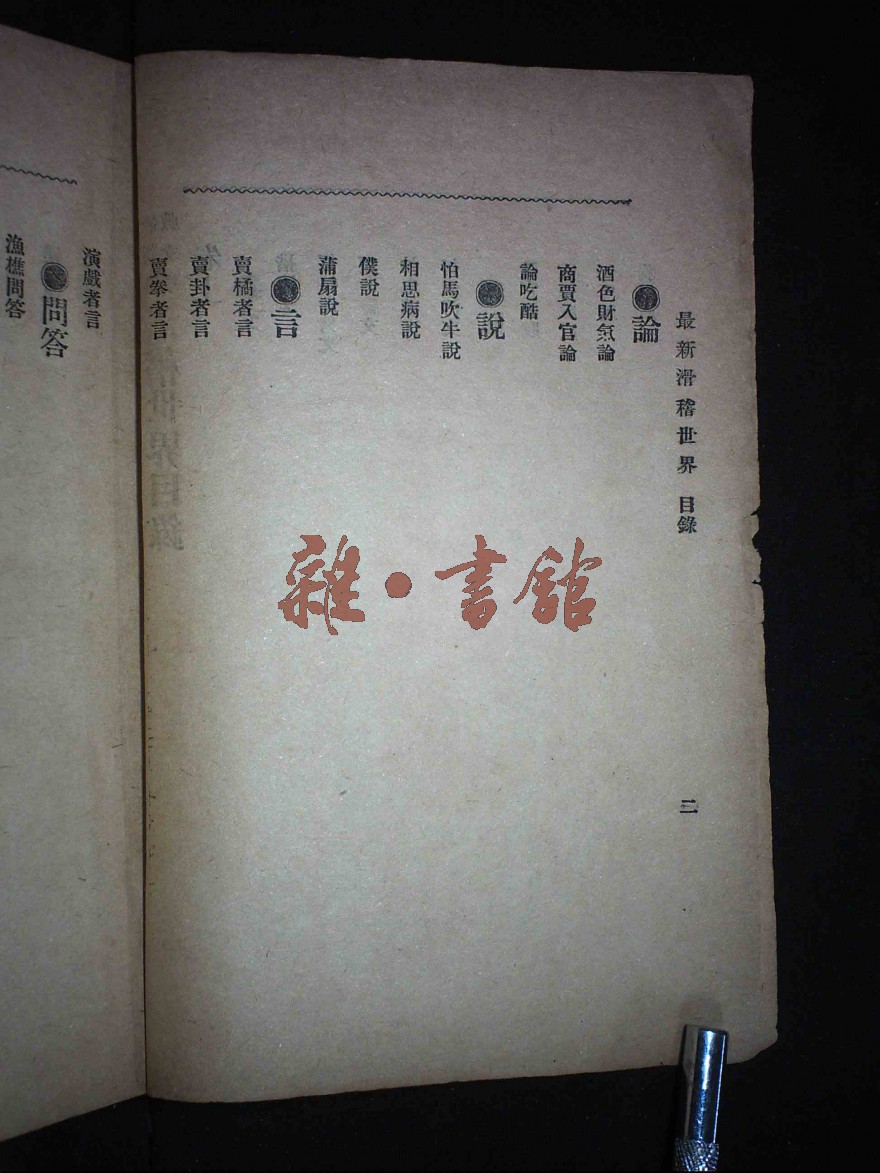 最新滑稽世界 目錄
二
論
酒色財氣論
商賈入官論
論吃醋
說
怕馬吹牛說
相思病說
僕說
蒲扇說
言
賣橘者言
賣卦者言
賣拳者言
演戲者言
問答
漁樵問答
雜·書館